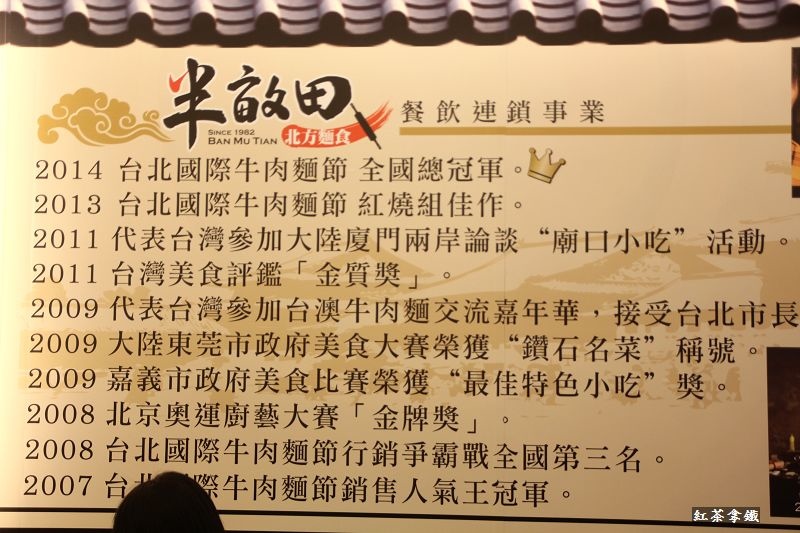 半畝田
SINCE 1982
BAN MU TIAN
北方麵食
餐飲連鎖事業
2014 台北國際牛肉麵節 全國總冠軍。
2013 台北國際牛肉麵節 紅燒組佳作。
2011 代表台灣參加大陸廈門兩岸論談“廟口小吃”活動。
2011 台灣美食評鑑「金質獎」。
2009 代表台灣參加台澳牛肉麵交流嘉年華，接受台北市長
2009 大陸東莞市政府美食大賽榮獲“鑽石名菜”稱號。
2009 嘉義市政府美食比賽榮獲“最佳特色小吃”獎。
2008 北京奧運廚藝大賽「金牌獎」。
2008 台北國際牛肉麵節行銷爭霸戰全國第三名。
2007 台北國際牛肉麵節銷售人氣王冠軍。
紅茶拿鐵